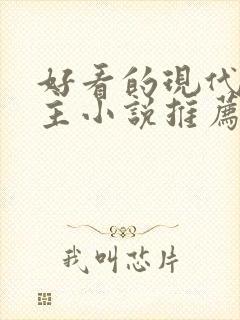 好看的現代
主小說推薦
我叫芯片